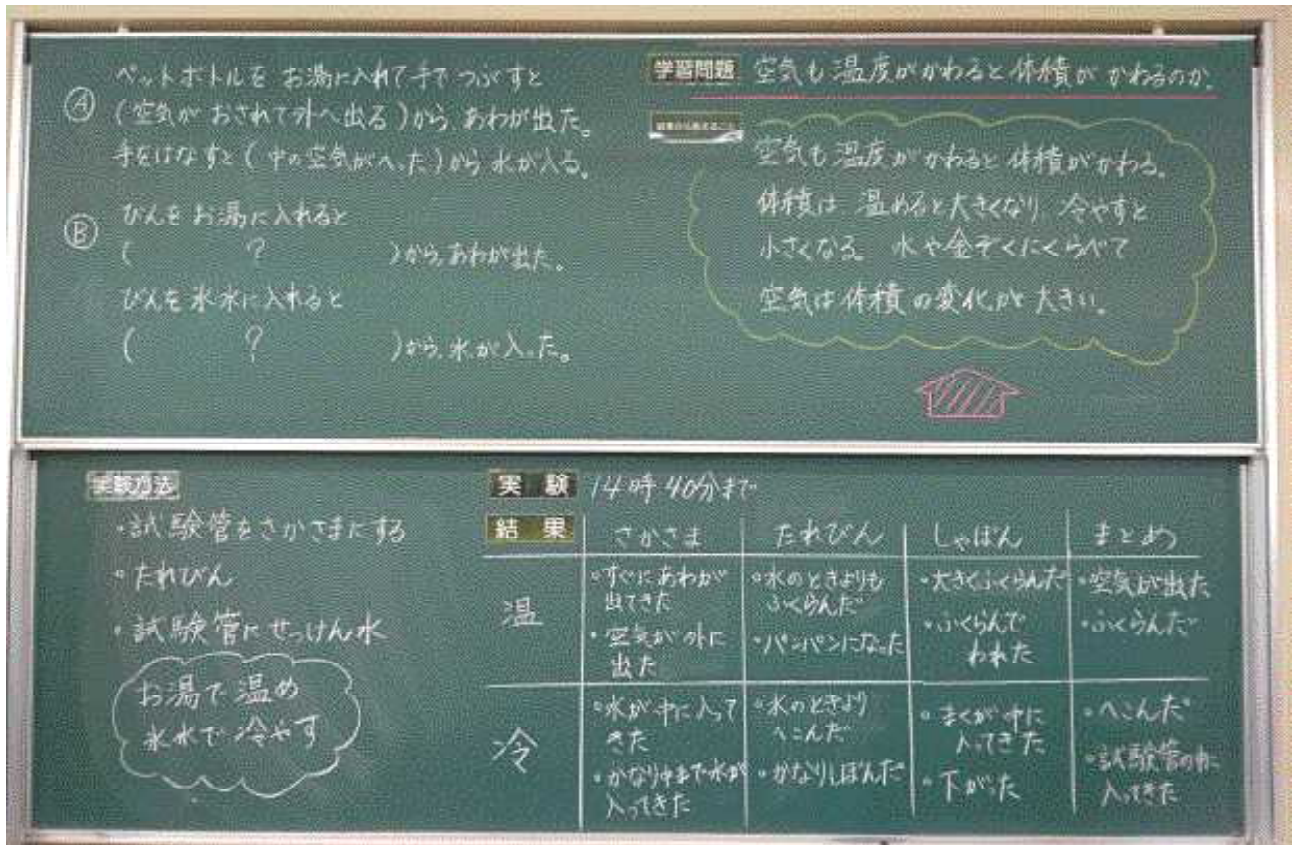 Ⓐ ペットボトルを お湯に入れて手で つぶすと
(空気が おされて外へ出る)から、あわが出た。
手をはなすと (中の空気がへった)から 水が入る。
Ⓑ びんを お湯に入れると
( ? )から、あわが出た。
びんを氷水に入れると
( ? )から、水が入った。
学習問題 空気も温度がかわると体積が かわるのか。
空気も温度がかわると体積がかわる。
体積は 温めると大きくなり 冷やすと
小さくなる。 水や金ぞくにくらべて
空気は体積の変化が大きい。
実験方法
・試験管をさかさまにする
・たれびん
・試験管にせっけん水
お湯で温め
氷水で冷やす
実験 14時40分まで
結果 さかさま たれびん しゃぼん まとめ
温
・すぐにあわが
出てきた
・空気が外に
出た
・水のときよりも
ふくらんだ
・パンパンになった
・大きくふくらんだ
・ふくらんで
われた
・空気が出た
・ふくらんだ
冷
・水が中に入って
きた
・かなり中まで水が
入ってきた
・水のときより
へこんだ
・かなりしぼんだ
・まくが中に
入ってきた
・下がった
・へこんだ
・試験管の中に
入ってきた